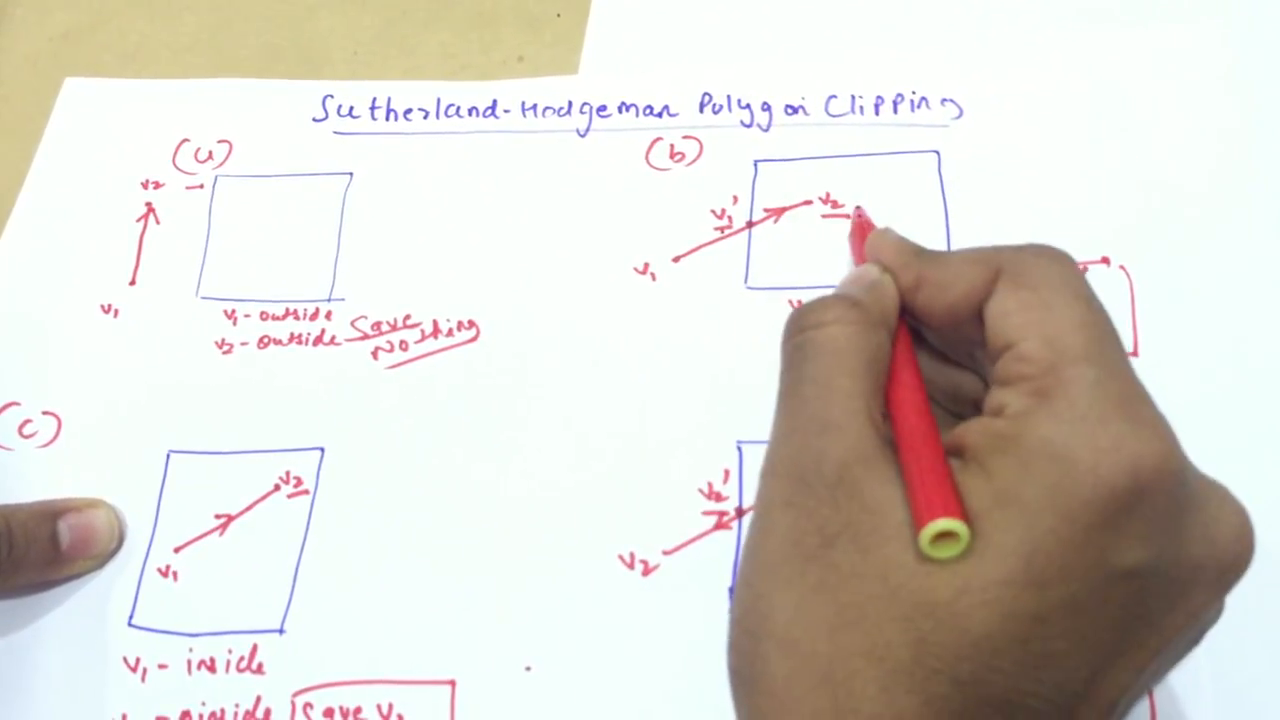 Sutherland-Hodgeman Polygon Clipping
(a)
v2
v1
v1-outside
v2-outside Save Nothing
(b)
v1'
v2
v1
(c)
v2
v1
v1-inside
inside Save v2
v2'
v2